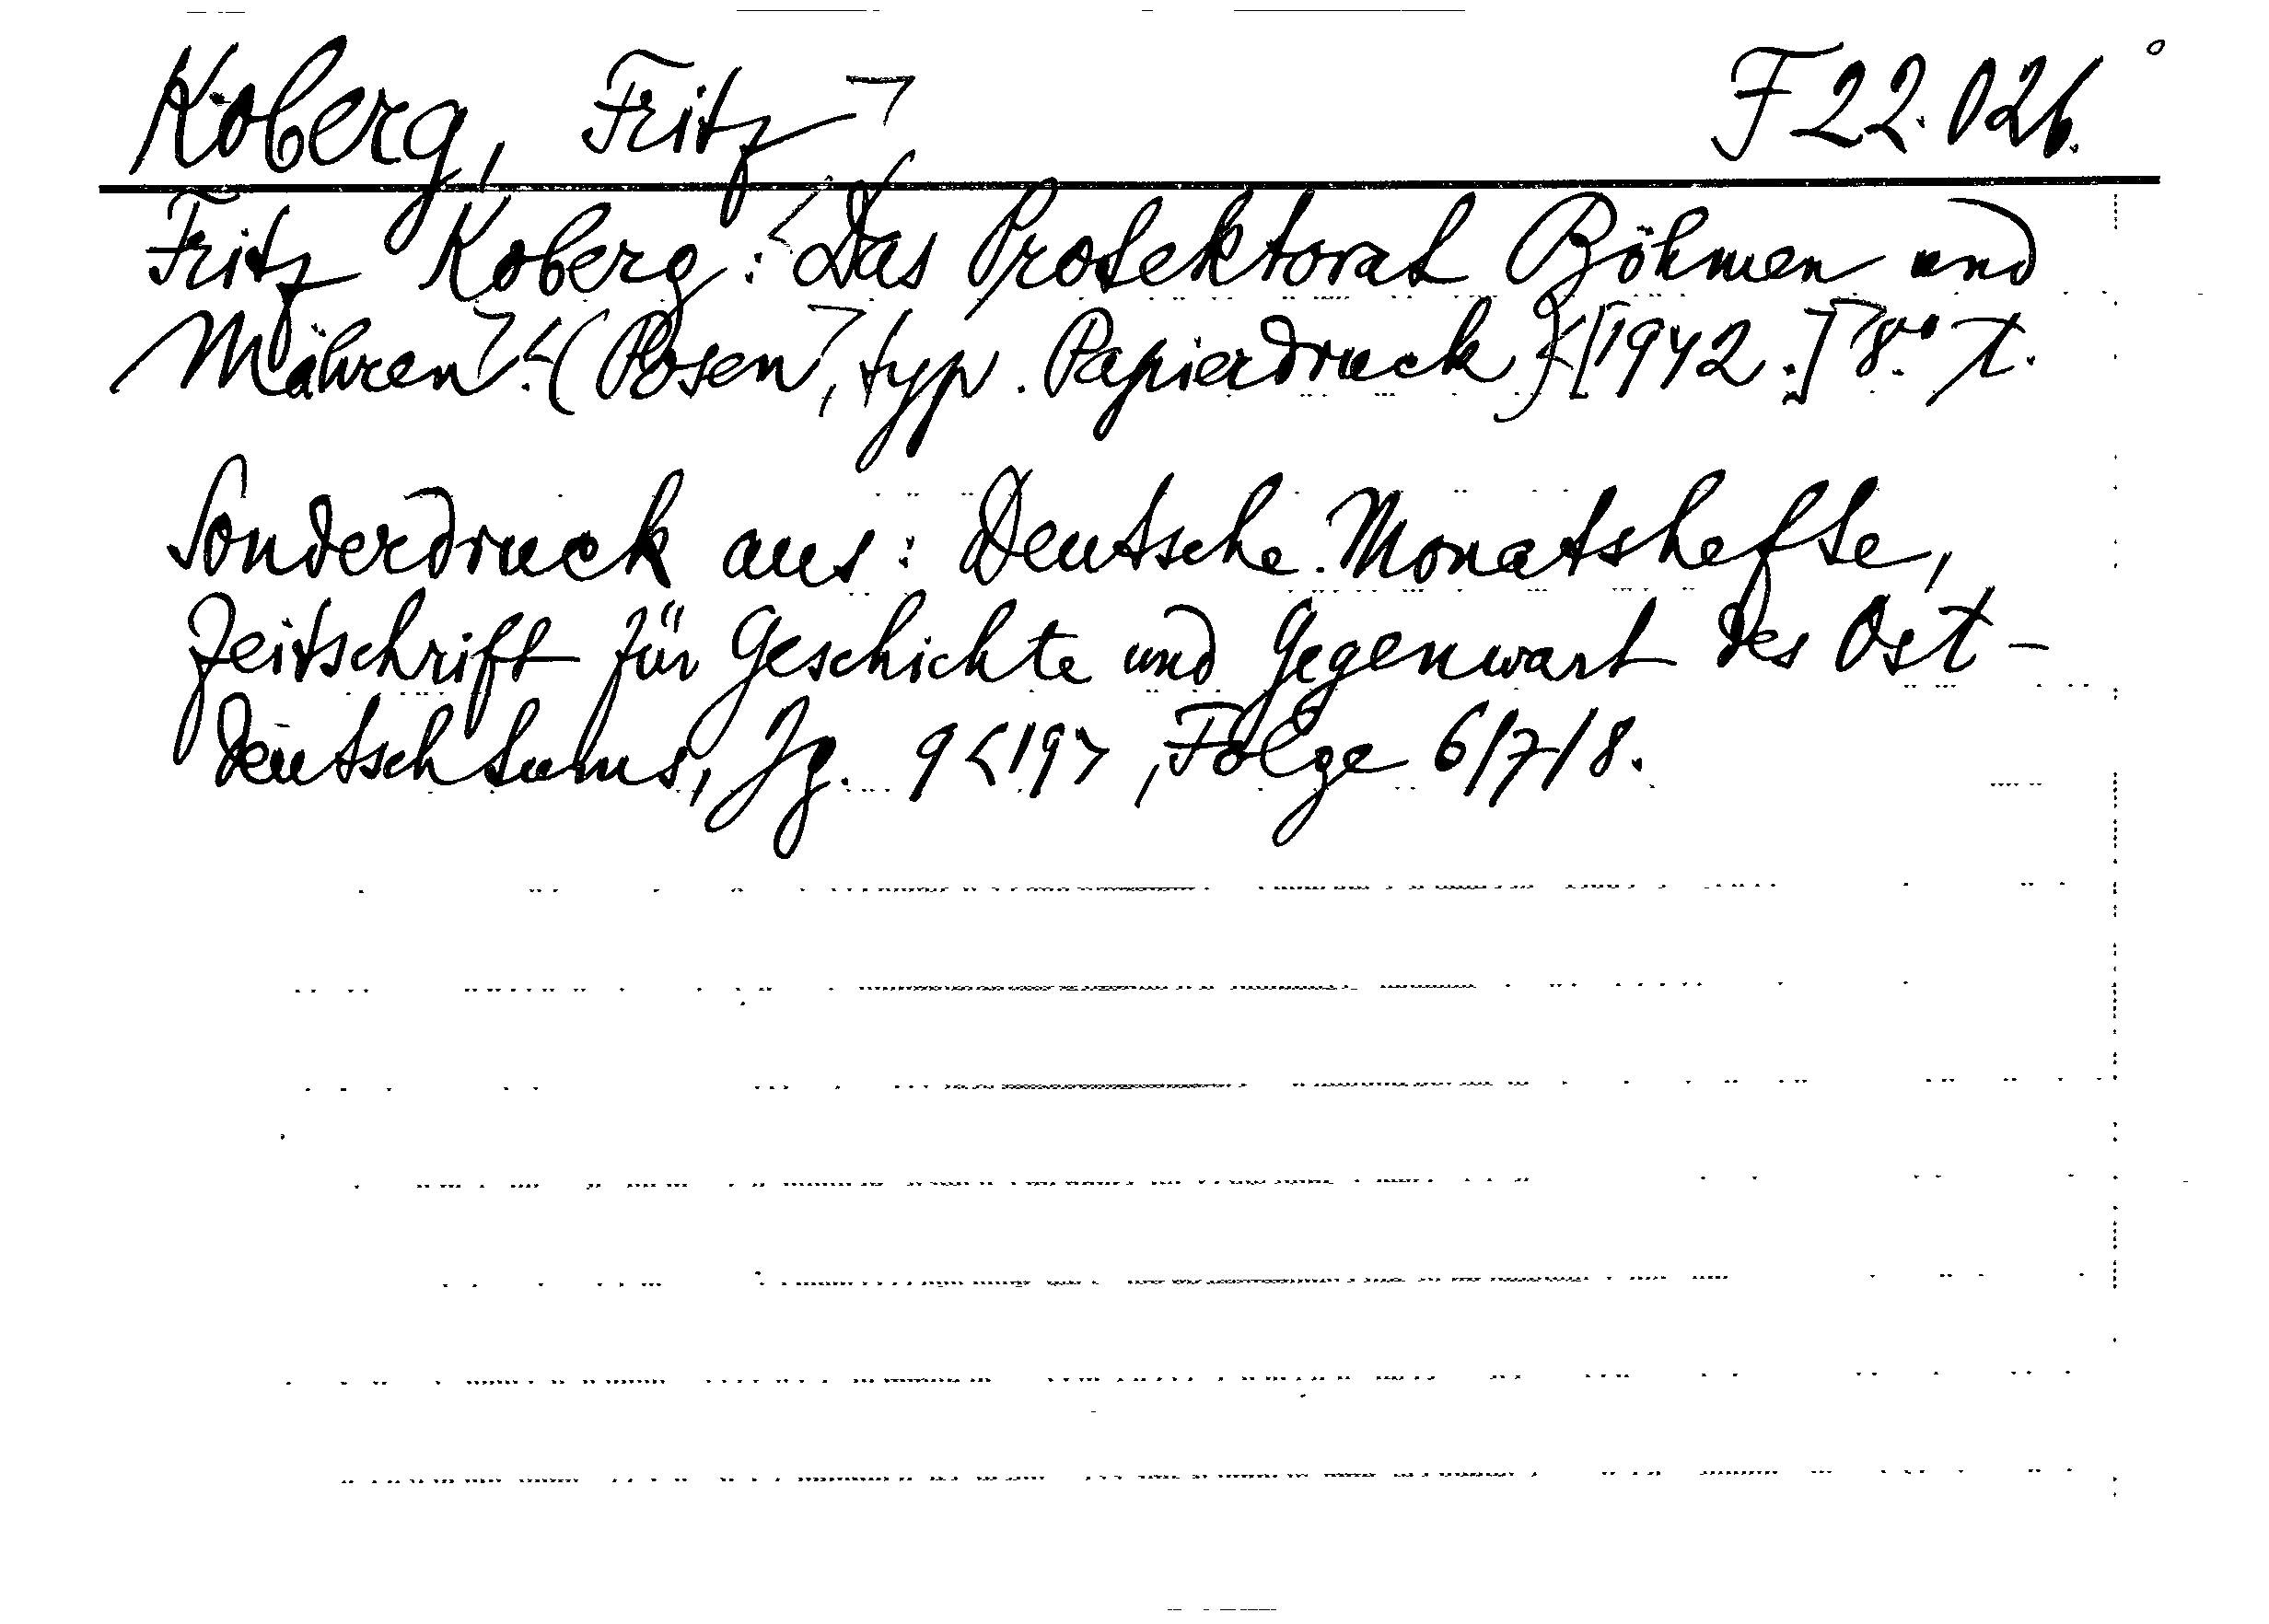 Koberg, Fritz F 22.026.
Fritz Koberg: Das Protektorat Böhmen und
Mähren. (Posen, typ. Papierdruck) [1942.] 8° T.
Sonderdruck aus: Deutsche Monatshefte,
Zeitschrift für Geschichte und Gegenwart des Ost-
deutschtums, Jg. 9<19>, Folge 6/7/8.